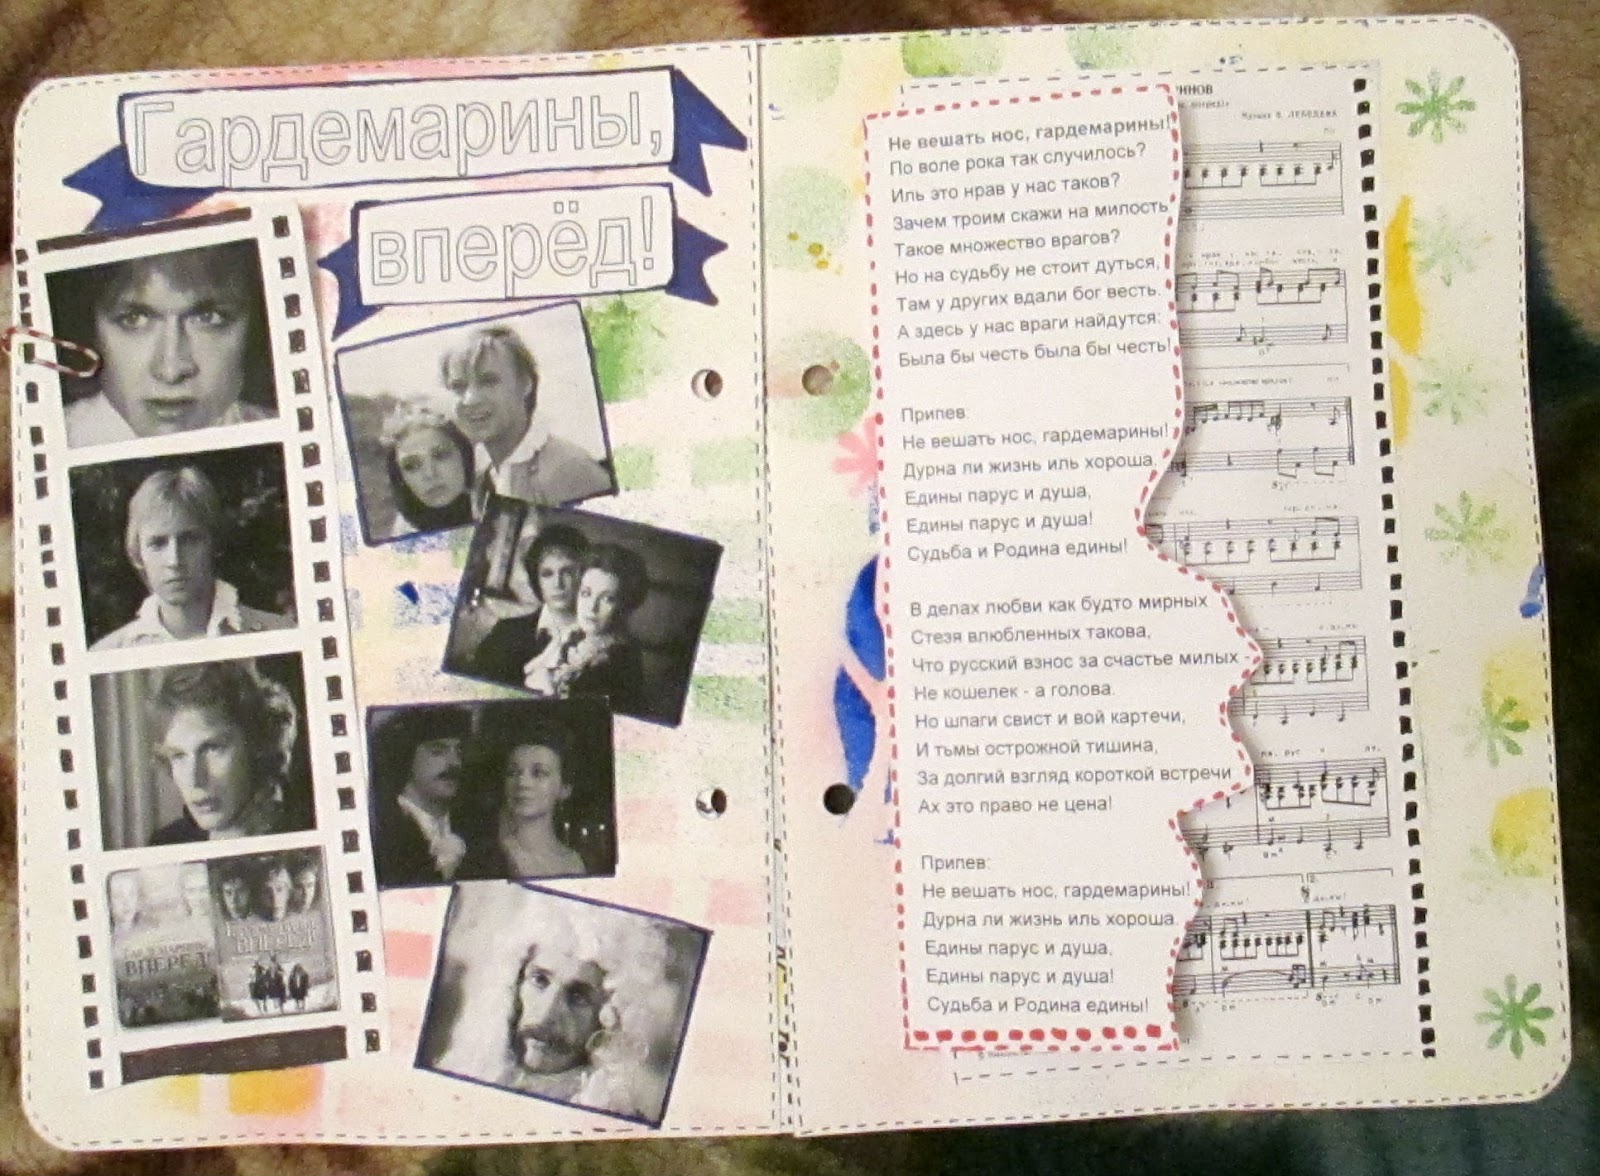 Гардемарины,
вперёд!
ГАРДЕМАРИНЫ
ВПЕРЕД!
ВПЕРЕД
Не вешать нос, гардемарины!
По воле рока так случилось?
Иль это нрав у нас таков?
Зачем троим скажи на милость
Такое множество врагов?
Но на судьбу не стоит дуться,
Там у других вдали бог весть.
А здесь у нас враги найдутся:
Была бы честь была бы честь!
Припев:
Не вешать нос, гардемарины!
Дурна ли жизнь иль хороша.
Едины парус и душа,
Едины парус и душа!
Судьба и Родина едины!
В делах любви как будто мирных
Стезя влюбленных такова,
Что русский взнос за счастье милых -
Не кошелек - а голова.
Но шпаги свист и вой картечи,
И тьмы острожной тишина,
За долгий взгляд короткой встречи
Ах это право не цена!
Припев:
Не вешать нос, гардемарины!
Дурна ли жизнь иль хороша.
Едины парус и душа,
Едины парус и душа!
Судьба и Родина едины!
ИНОВ
вперед!»
Музыка В. ЛЕБЕДЕВА